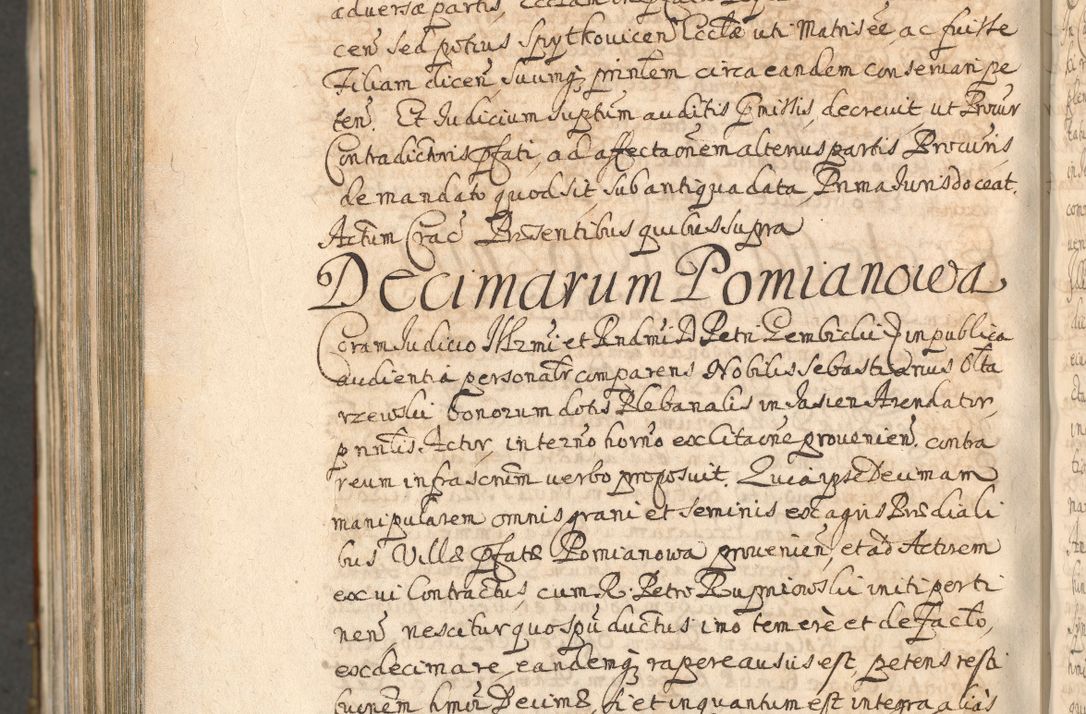 adversæ partis,
cen̄ sed potius Spytkovicen̄ Ecctæ uti Matrisèe, ac fuisse
Filiam dicen̄, suumq̨ printem circa eandem conservari pe
ten̄. Et Judicium suptum auditis pmissis, decrevit ut Procur
Contradictoris pfati, ad affectaōnem alterius partis Procuris
de mandato quod sit sub antiqua data, Prima Juris doceat.
Actum Crac̄ Præsentibus quibus supra
Decimarum Pomianowa
Coram Judicio Illrmi et Rndmi D Petri Gembickii in publica
audientia personalr comparens Nobilis Sebastianus Olta
rzewskii bonorum dotis Plebanalis in Jasien Arendator,
pnntis Actor, in terno horno ex citaōne provenien̄. contra
reum infrascrum verbo proposuit. Quia ipse Decimam
manipularem omnis grani et seminis ex agris Prædiali
bus Villæ pfatæ Pomianowa provenien̄, et ad Actorem
ex vi Contractus cum R. Petro Rupniowskii initi perti
nen̄ nescitur quo spū ductus imo temerè et de facto,
exdecimare, eandemq̨ rapere ausus est, petens resti
tuōnem hmōi Decimæ, si et inquantum est integra aliàs